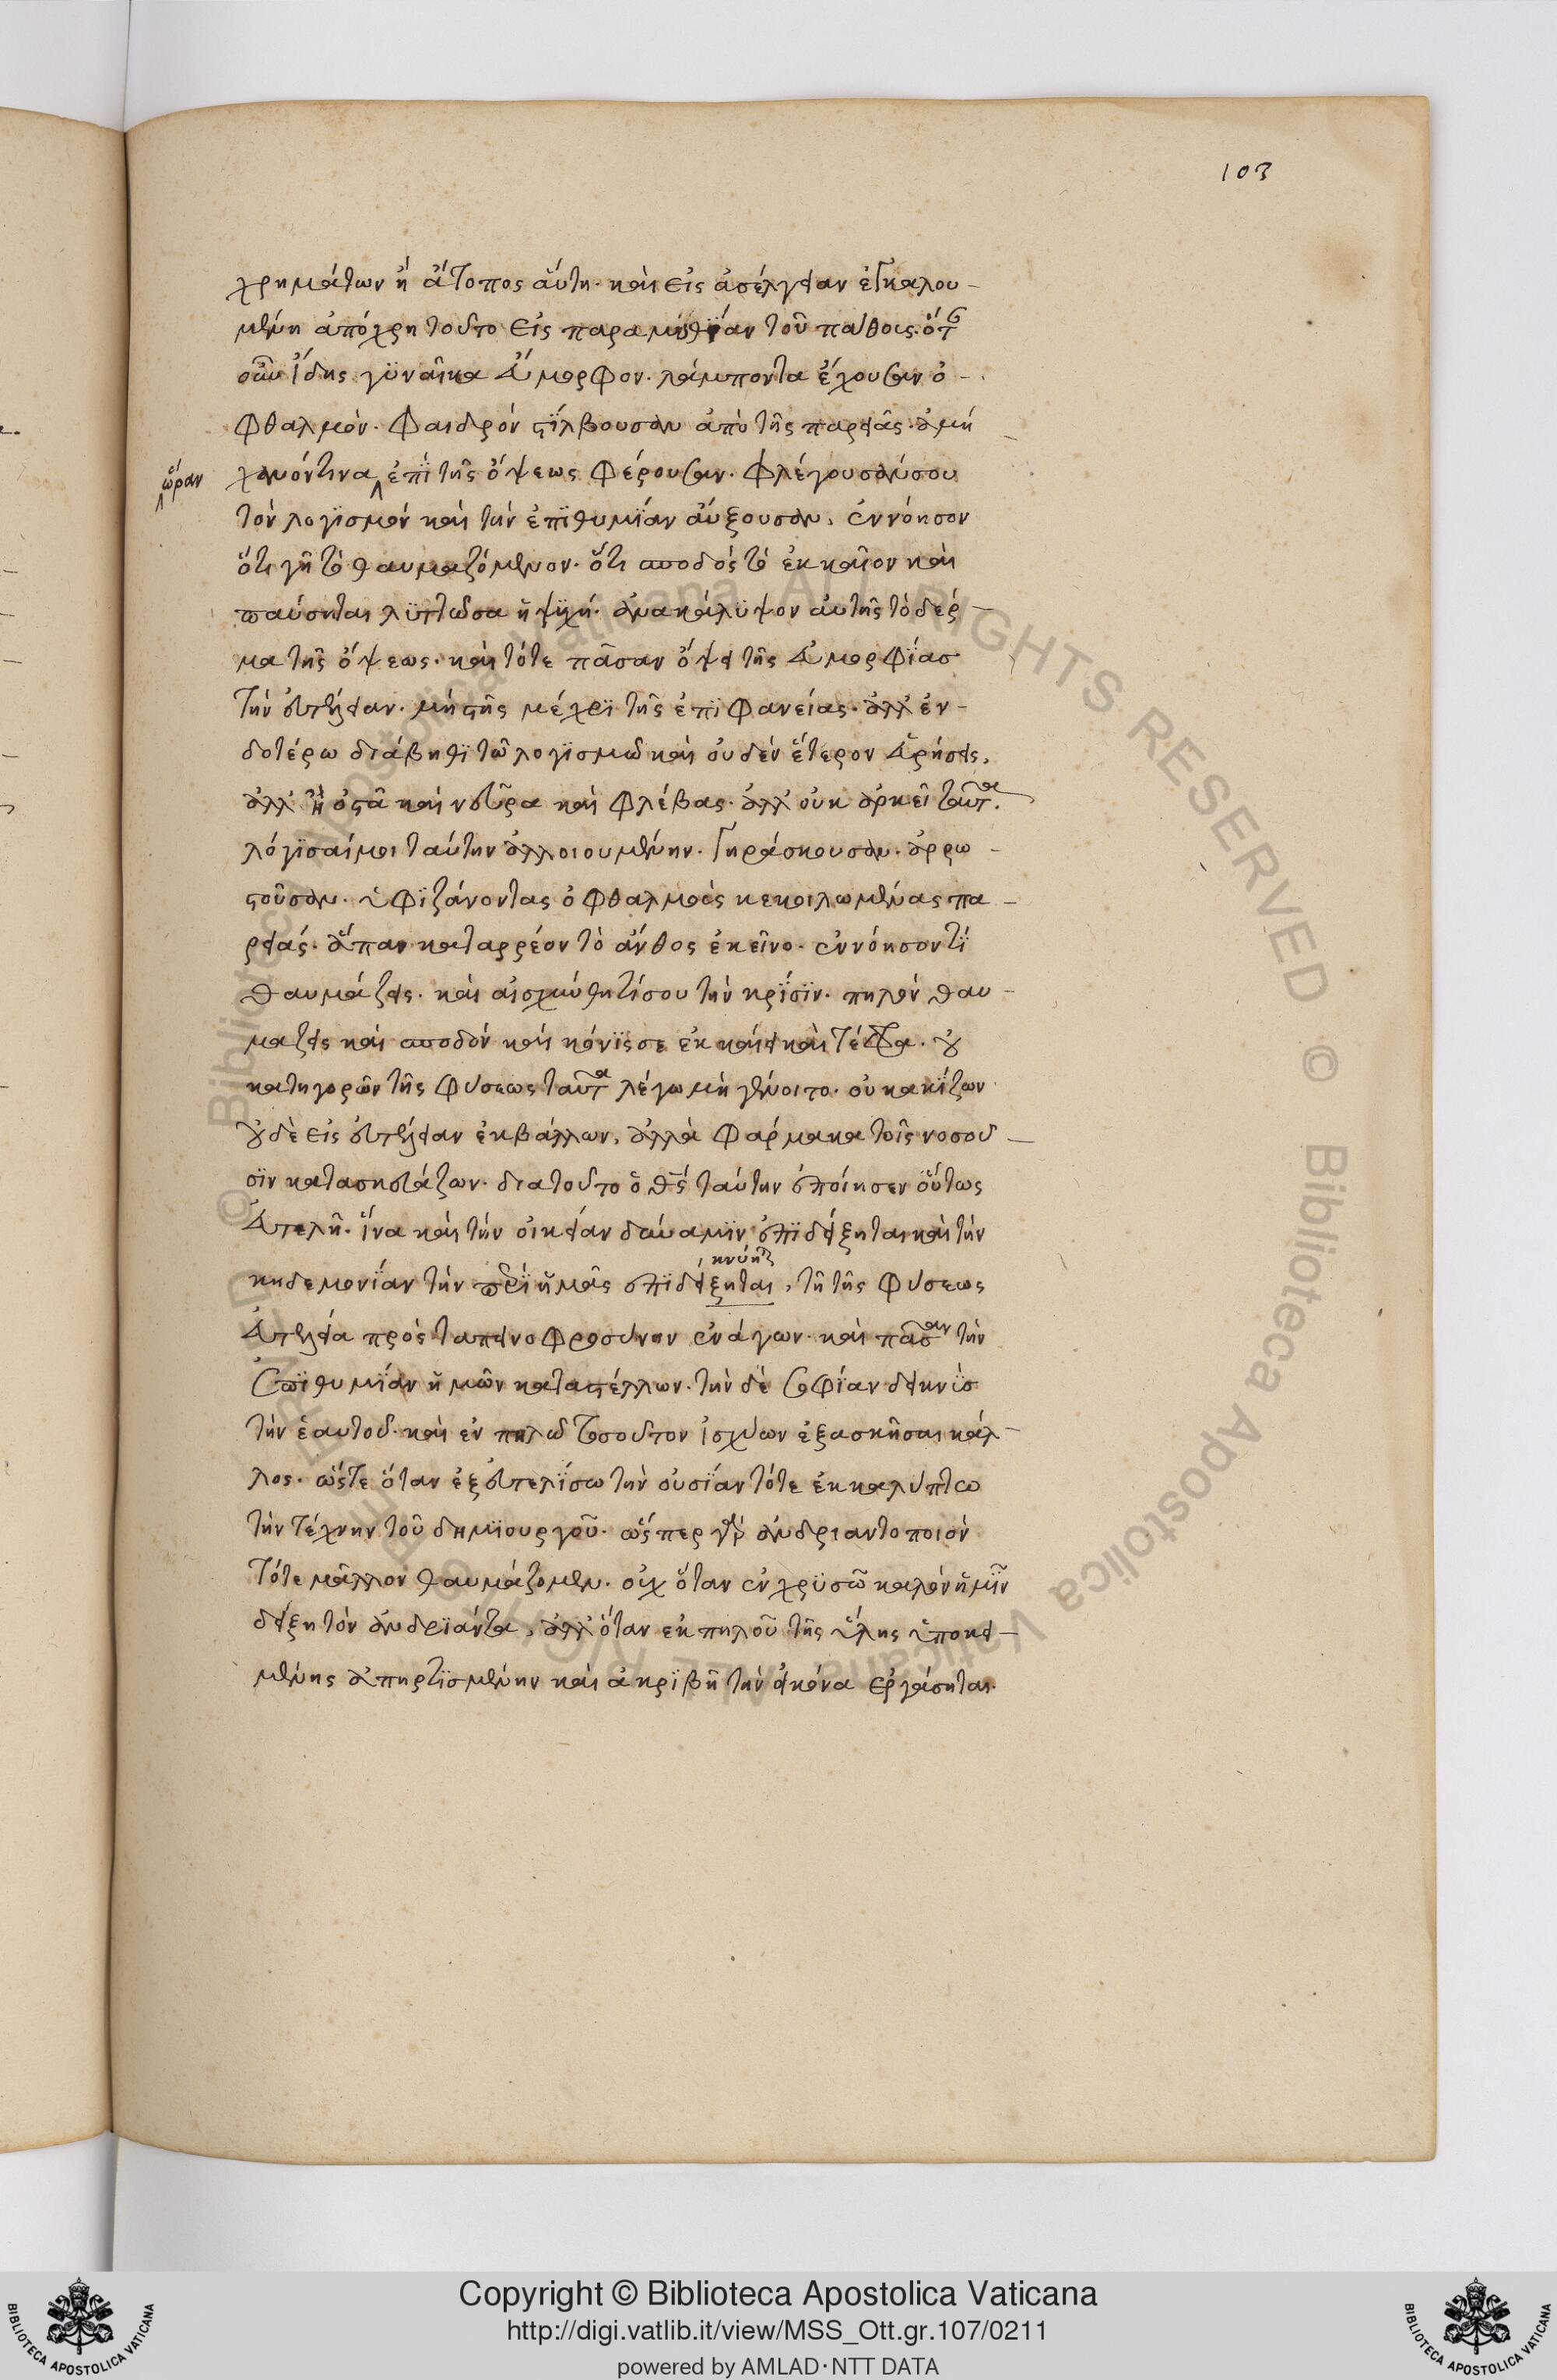 103
χρημάτων ἡ ἄτοπος αὕτη. καὶ εἰς ἀσέλγειαν ἐγκαλου-
μένη ἀπόχρη τοῦτο εἰς παραμυθΐαν τοῦ πάθους. ὅταν
οὖν ἴδης γϋναῖκα εὔμορφον. λάμποντα ἔχουσαν ὀ-
φθαλμὸν. φαιδρόν στΐλβουσαν ἀπὸ τῆς παρειᾶς. ἀμή
ὥραν
χανόντινα ἐπῒ τῆς ὄψεως φέρουσαν. φλέγουσάν σου
τὸν λογϊσμόν καὶ τὴν ἐπϊθυμΐαν αὔξουσαν, ἐννόησον
ὅτι γῆ τὸ θαυμαζόμενον. ὅτι σποδὸς τὸ ἐκκαῖον καὶ
παύσηται λϋττῶσα ἡ ψϋχή. ἀνακάλϋψον αὐτῆς τὸ δέρ-
μα τῆς ὄψεως. καὶ τότε πᾶσαν ὄψει τῆς εὐμορφΐας
τὴν εὐτέλειαν. μὴ στῆς μέχρϊ τῆς ἐπϊφανείας. ἀλλ' ἐν-
δοτέρω διάβηθϊ τῶ λογϊσμῶ καὶ οὐδὲν ἕτερον εὑρήσεις,
ἀλλ' ἢ ὀστᾶ καὶ νεῦρα καὶ φλέβας. ἀλλ' οὐκ ἀρκεῖ ταῦτα.
λόγϊσαί μοι ταύτην ἀλλοιουμένην. γηράσκουσαν. ἀρρω-
στοῦσαν. ὑφϊζάνοντας ὀφθαλμοὺς κεκοιλωμένας πα-
ρειάς. ἅπαν καταρρέον τὸ ἄνθος ἐκεῖνο. ἐννόησον τΐ
θαυμάζεις. καὶ αἰσχύνθητί σου τὴν κρΐσϊν. πηλὸν θαυ-
μάζεις καὶ σποδὸν καὶ κόνϊς σε ἐκκαίει καὶ τέφρα. οὐ
κατηγορῶν τῆς φύσεως ταῦτα λέγω μὴ γένοιτο. οὐ κακΐζων
οὐδὲ εἰς εὐτέλειαν ἐκβάλλων, ἀλλὰ φάρμακα τοῖς νοσοῦ-
σϊν κατασκευάζων. διατοῦτο ὁ θς ταύτην ἐποίησεν οὕτως
εὐτελῆ. ἵνα καὶ τὴν οἰκείαν δύναμϊν ἐπϊδείξηται καὶ τὴν
κηδεμονΐαν τὴν περῒ ἡμᾶς ἐπϊδείξηται, τῆ τῆς φύσεως
εὐτελεία πρὸς ταπεινοφροσύνην ἐνάγων. καὶ πᾶσαν τὴν
ἐπϊθυμΐαν ἡμῶν καταστέλλων. τὴν δὲ σοφΐαν δεικνῒς
τὴν ἑαυτοῦ. καὶ ἐν πηλῶ τοσοῦτον ἰσχύων ἐξασκῆσαι κάλ-
λος. ὥστε ὅταν ἐξευτελΐσω τὴν οὐσΐαν τότε ἐκκαλύπτω
τὴν τέχνην τοῦ δημϊουργοῦ. ὥσπερ γὰρ ἀνδριαντοποιὸν
τότε μᾶλλον θαυμάζομεν. οὐχ ὅταν ἐν χρϋσῶ καλὸν ἡμῖν
δείξη τὸν ἀνδρϊάντα, ἀλλ' ὅταν ἐκ πηλοῦ τῆς ὕλης ὑποκει-
μένης ἀπηρτϊσμένην καὶ ἀκρϊβῆ τὴν εἰκόνα ἐργάσηται.
Copyright © Biblioteca Apostolica Vaticana
http://digi.vatlib.it/view/MSS_Ott.gr.107/0211
powered by AMLAD·NTT DATA